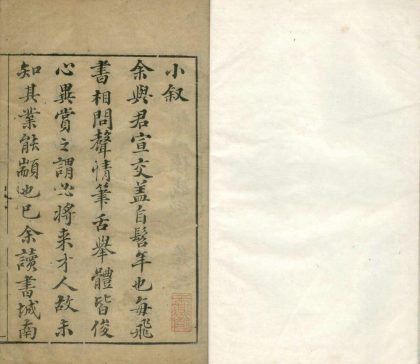 小叙
余與君宣交盖自髫年也每飛
書相問聲情筆舌舉體皆俊
心異賞之謂必將来才人故未
知其業能顓也已余讀書城南